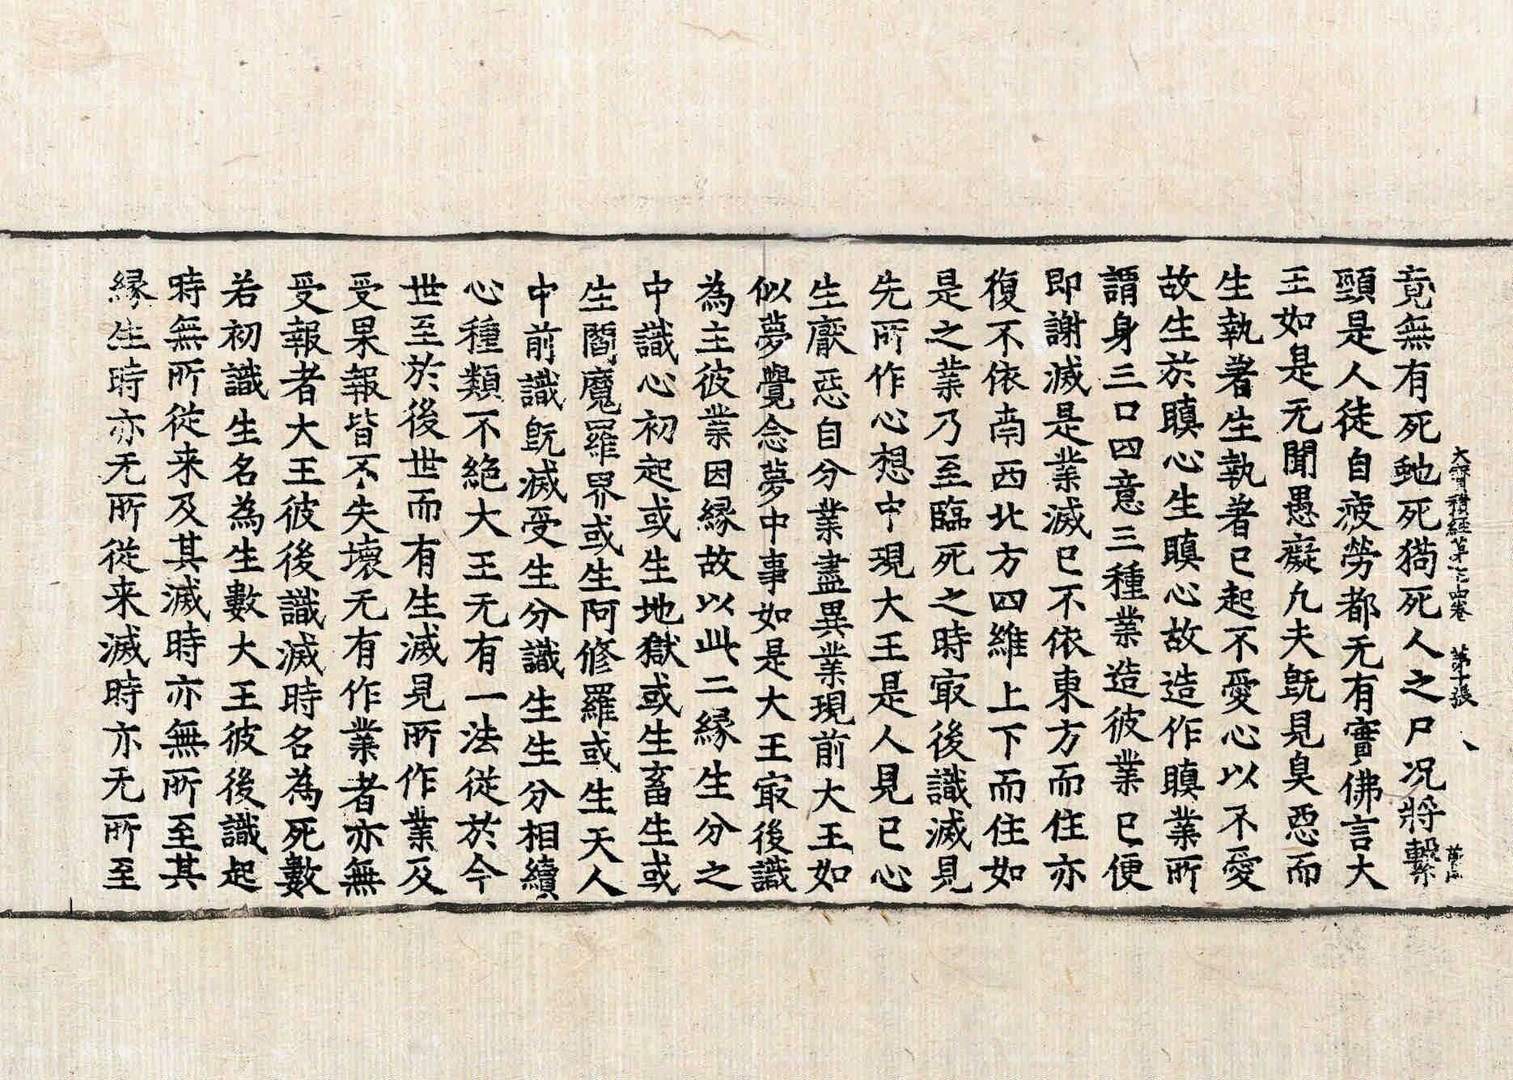 竟無有死虵死猫死人之尸况將繫
頸是人徒自疲勞都无有實佛言大
王如是无聞愚癡凢夫旣見臭惡而
生執著生執著已起不愛心以不愛
故生於瞋心生瞋心故造作瞋業所
謂身三口四意三種業造彼業已便
即謝滅是業滅已不依東方而住亦
復不依南西北方四維上下而住如
是之業乃至臨死之時㝡後識滅見
先所作心想中現大王是人見已心
生厭惡自分業盡異業現前大王如
似夢覺念夢中事如是大王㝡後識
為主彼業因縁故以此二縁生分之
中識心初起或生地獄或生畜生或
生閻魔羅界或生阿修羅或生天人
中前識旣滅受生分識生生分相續
心種類不絶大王无有一法從於今
世至於後世而有生滅見所作業及
受果報皆不失壞无有作業者亦無
受報者大王彼後識滅時名為死數
若初識生名為生數大王彼後識起
時無所從来及其滅時亦無所至其
縁生時亦无所從来滅時亦无所至